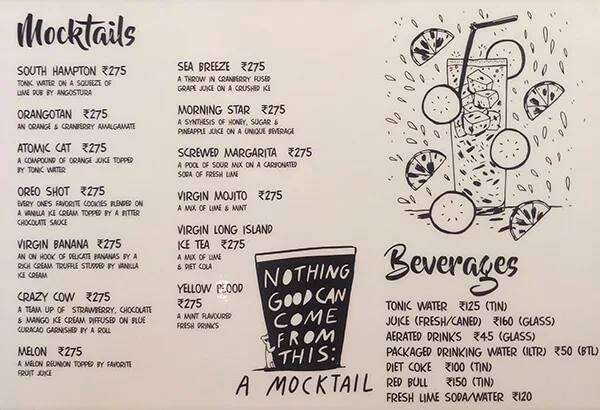 Mocktails
SOUTH HAMPTON ₹275
TONIC WATER ON A SQUEEZE OF
LIME DUB BY ANGOSTURA
ORANGOTAN ₹275
AN ORANGE & CRANBERRY AMALGAMATE
ATOMIC CAT ₹275
A COMPOUND OF ORANGE JUICE TOPPED
BY TONIC WATER
OREO SHOT ₹275
EVERY ONE'S FAVORITE COOKIES BLENDED ON
A VANILLA ICE CREAM TOPPED BY A BITTER
CHOCOLATE SAUCE
VIRGIN BANANA ₹275
AN ON HOOK OF DELICATE BANANAS BY A
RICH CREAM TRUFFLE STUDDED BY VANILLA
ICE CREAM
CRAZY COW ₹275
A TEAM UP OF STRAWBERRY, CHOCOLATE
& MANGO ICE CREAM DIFFUSED ON BLUE
CURACAO GARNISHED BY A ROLL
MELON ₹275
A MELON REUNION TOPPED BY FAVORITE
FRUIT JUICE
SEA BREEZE ₹275
A THROW IN CRANBERRY FUSED
GRAPE JUICE ON A CRUSHED ICE
MORNING STAR ₹275
A SYNTHESIS OF HONEY, SUGAR &
PINEAPPLE JUICE ON A UNIQUE BEVERAGE
SCREWED MARGARITA ₹275
A POOL OF SOUR MIX ON A CARBONATED
SODA OF FRESH LIME
VIRGIN MOJITO ₹275
A MIX OF LIME & MINT
VIRGIN LONG ISLAND
ICE TEA ₹275
A MIX OF LIME
& DIET COLA
YELLOW
₹275
A MINT FLAVOURED
FRESH DRINKS
NOTHING
GOOD CAN
COME
FROM
THIS:
A MOCKTAIL
Beverages
TONIC WATER ₹125 (TIN)
JUICE (FRESH/CANED) ₹160 (GLASS)
AERATED DRINKS ₹45 (GLASS)
PACKAGED DRINKING WATER (1LTR) ₹50 (BTL)
DIET COKE ₹100 (TIN)
RED BULL ₹150 (TIN)
FRESH LIME SODA/WATER ₹120